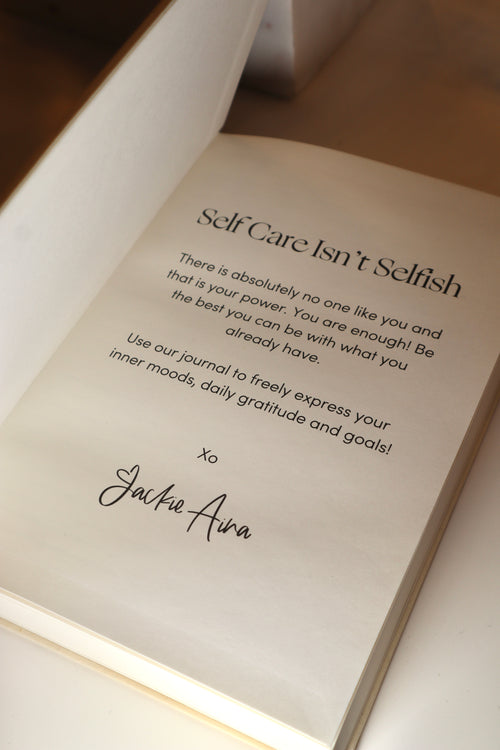 Self Care Isn't Selfish
There is absolutely no one like you and
that is your power. You are enough! Be
the best you can be with what you
already have.
Use our journal to freely express your
inner moods, daily gratitude and goals!
Xo
Jackie Aina